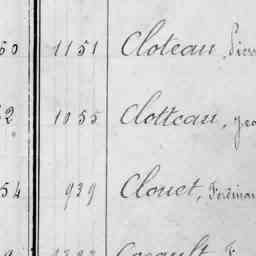 50 1151 Cloteau, Pierr
52 1055 Clotteau, Jea
54 939 Clouet, Ferdinan